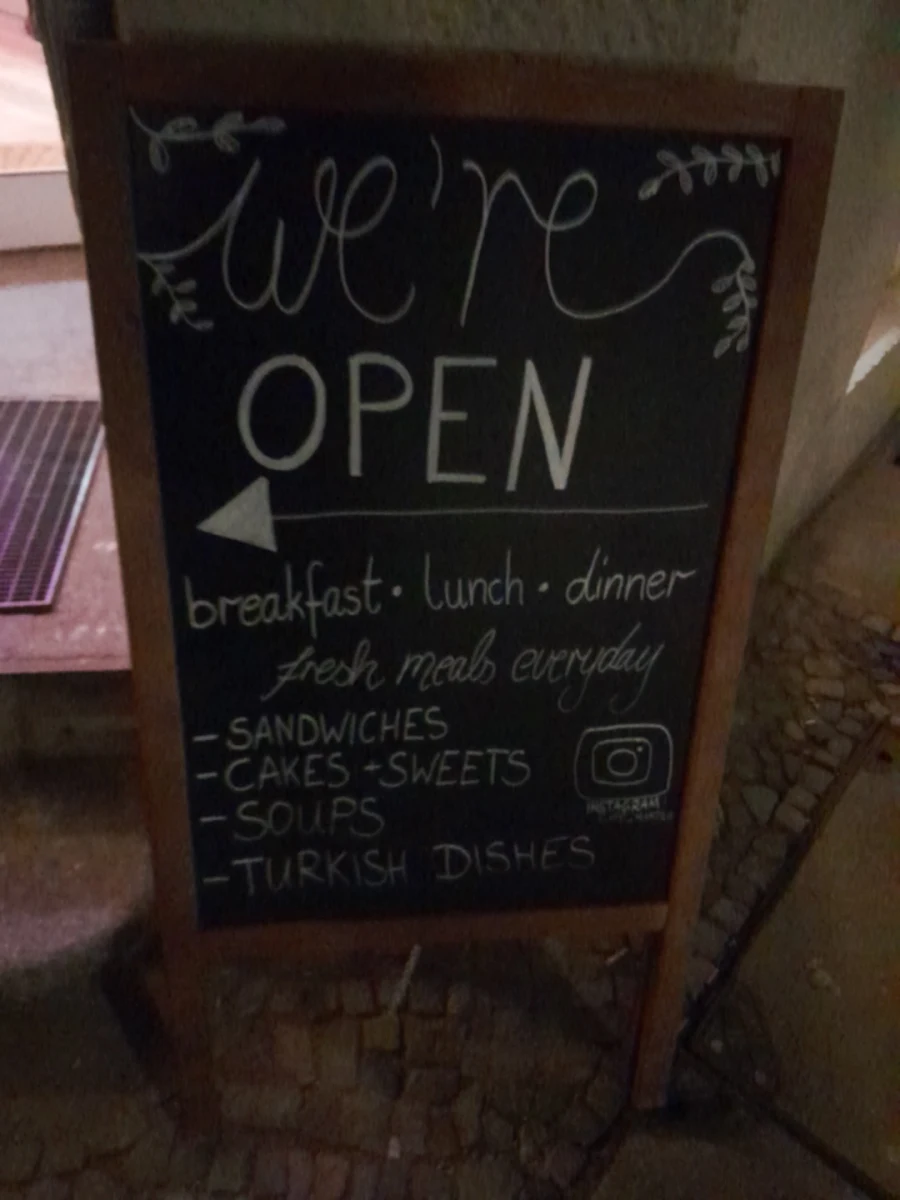 we're
OPEN
breakfast · lunch · dinner
fresh meals everyday
- SANDWICHES
- CAKES + SWEETS
- SOUPS
- TURKISH DISHES
INSTAGRAM